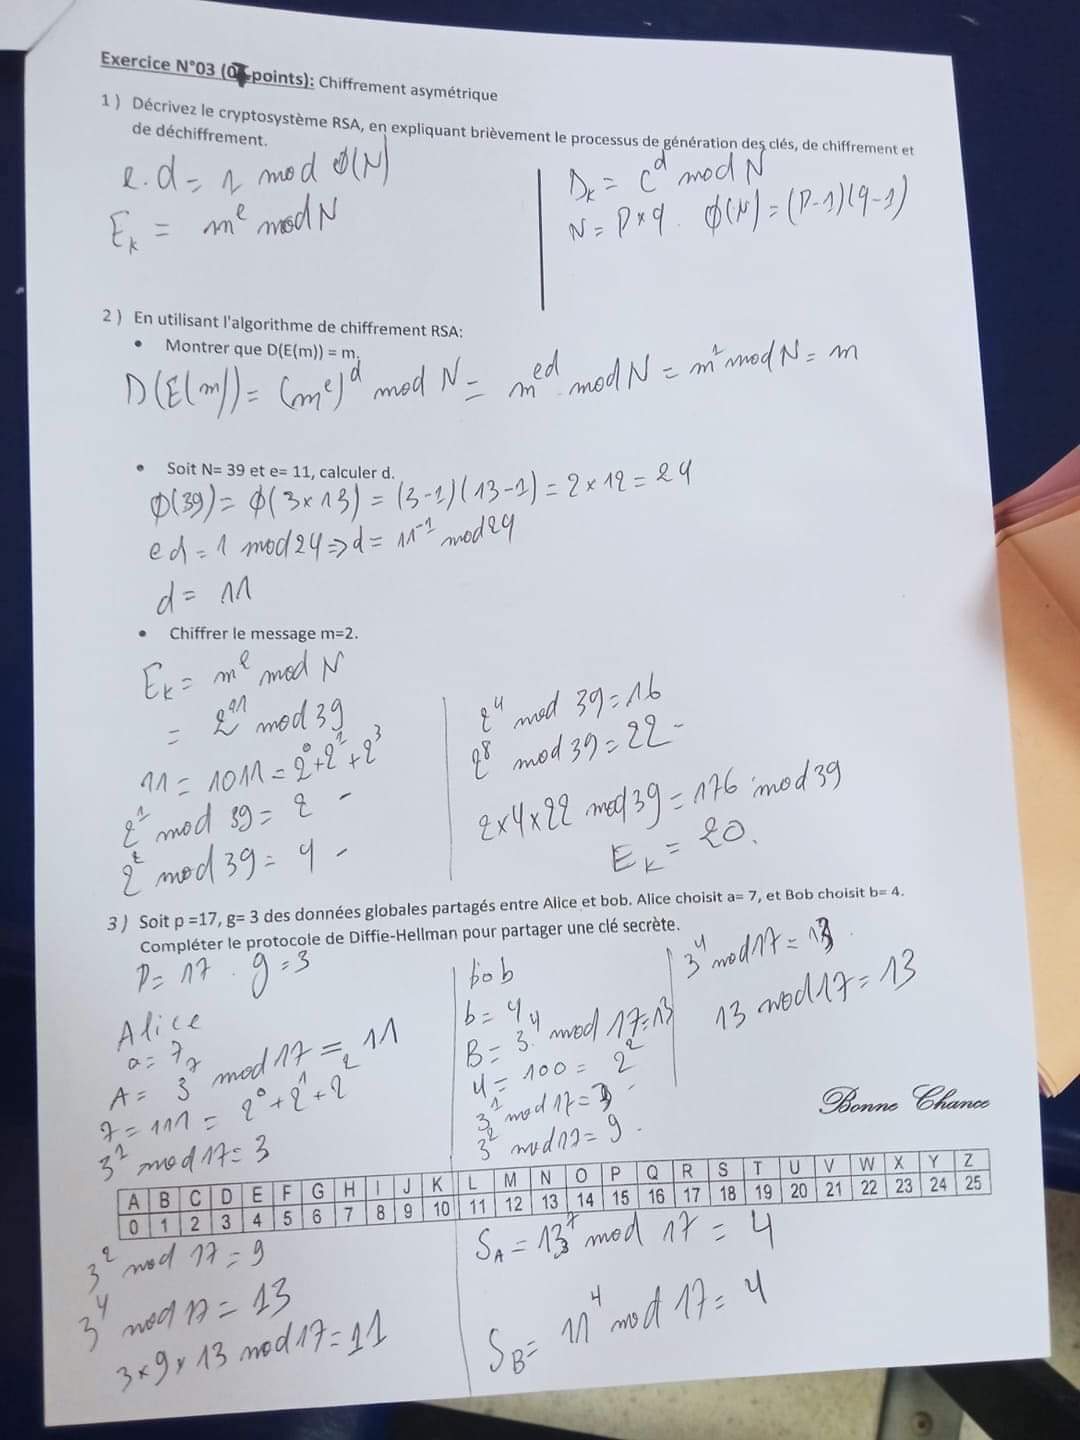 Exercice N°03 (0 points): Chiffrement asymétrique
1 ) Décrivez le cryptosystème RSA, en expliquant brièvement le processus de génération des clés, de chiffrement et
de déchiffrement.
e.d = 1 mod φ(N)
E_k = m^e mod N
D_k = C^d mod N
N = P×q . φ(N) = (P-1)(q-1)
2 ) En utilisant l'algorithme de chiffrement RSA:
• Montrer que D(E(m)) = m.
D(E(m)) = (m^e)^d mod N = m^ed mod N = m^1 mod N = m
• Soit N= 39 et e= 11, calculer d.
φ(39) = φ(3×13) = (3-1)(13-1) = 2×12 = 24
ed = 1 mod 24 ⇒ d = 11^-1 mod 24
d = 11
• Chiffrer le message m=2.
E_k = m^e mod N
= 2^11 mod 39
11 = 1011 = 2^0+2^1+2^3
2^1 mod 39 = 2 -
2^2 mod 39 = 4 -
2^4 mod 39 = 16
2^8 mod 39 = 22 -
2×4×22 mod 39 = 176 mod 39
E_k = 20.
3 ) Soit p =17, g= 3 des données globales partagés entre Alice et bob. Alice choisit a= 7, et Bob choisit b= 4.
Compléter le protocole de Diffie-Hellman pour partager une clé secrète.
P = 17 . g = 3
Alice
a = 7
A = 3^7 mod 17 = 11
7 = 111 = 2^0+2^1+2^2
3^1 mod 17 = 3
bob
b = 4
B = 3^4 mod 17 = 13
4 = 100 = 2^2
3^1 mod 17 = 3
3^2 mod 17 = 9
3^4 mod 17 = 13
13 mod 17 = 13
Bonne Chance
A B C D E F G H I J K L M N O P Q R S T U V W X Y Z
0 1 2 3 4 5 6 7 8 9 10 11 12 13 14 15 16 17 18 19 20 21 22 23 24 25
3^2 mod 17 = 9
3^4 mod 17 = 13
3×9×13 mod 17 = 11
S_A = 13^7 mod 17 = 4
S_B = 11^4 mod 17 = 4